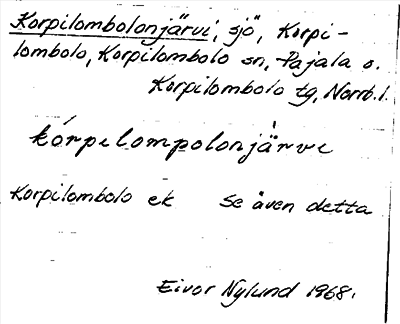 Korpilombolonjärvi, sjö, Korpi-
lombolo, Korpilombolo sn, Pajala s.
Korpilombolo tg, Norrb. l.
kórpelompolonjàrve
Korpilombolo ek se även detta
Eivor Nylund 1968.